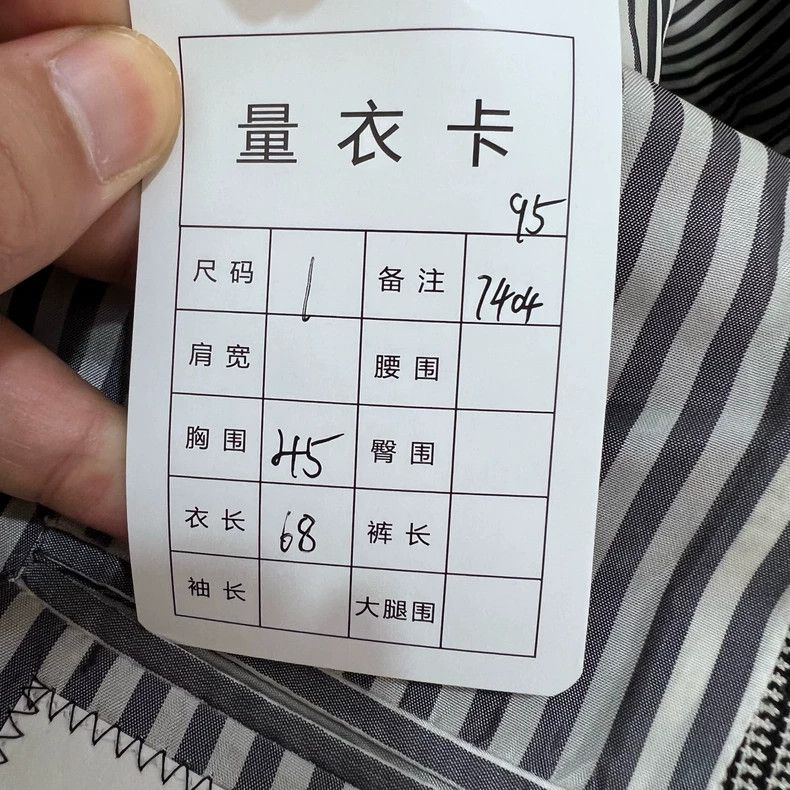 量衣卡
95
尺码 1 备注 7404
肩宽 腰围
胸围 45 臀围
衣长 68 裤长
袖长 大腿围